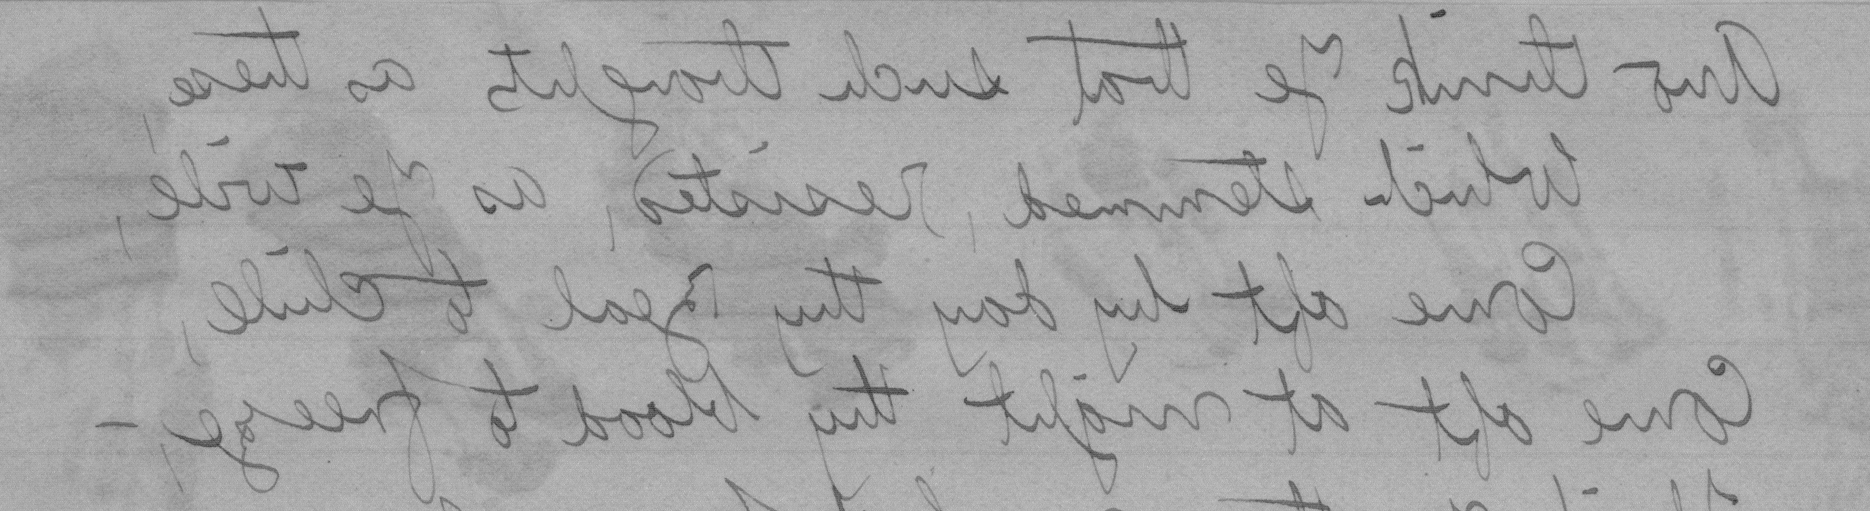 And think ye that such thoughts as these
Which stemmed, resisted, as ye will,
Come oft by day thy zeal to chill,
Come oft at night thy blood to freeze, -